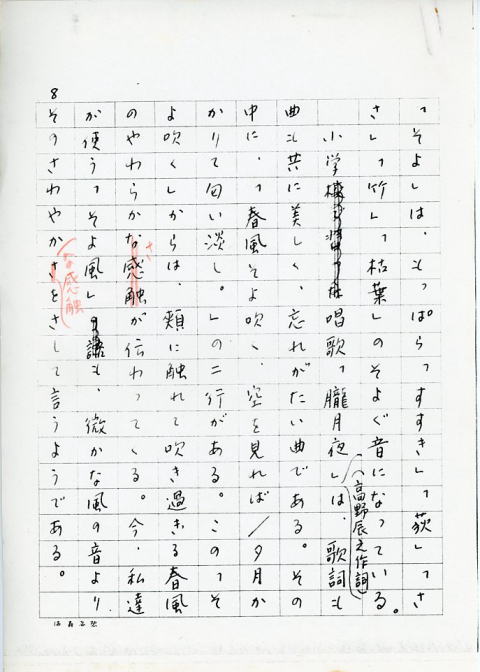 「そよ」は、もっぱら「すすき」「荻」「さ
さ」「竹」「枯葉」のそよぐ音になっている。
小学唱歌「朧月夜」(高野辰之作詞)は、歌詞も
曲も共に美しく、忘れがたい曲である。その
中に、「春風そよ吹く、空を見れば/夕月か
かりて匂い淡し。」の二行がある。この「そ
よ吹く」からは、頬に触れて吹き過ぎる春風
のやわらかな感触が伝わってくる。今、私達
さ
が使う「そよ風」も、微かな風の音より、
そのさわやかさをさして言うようである。
な感触
8